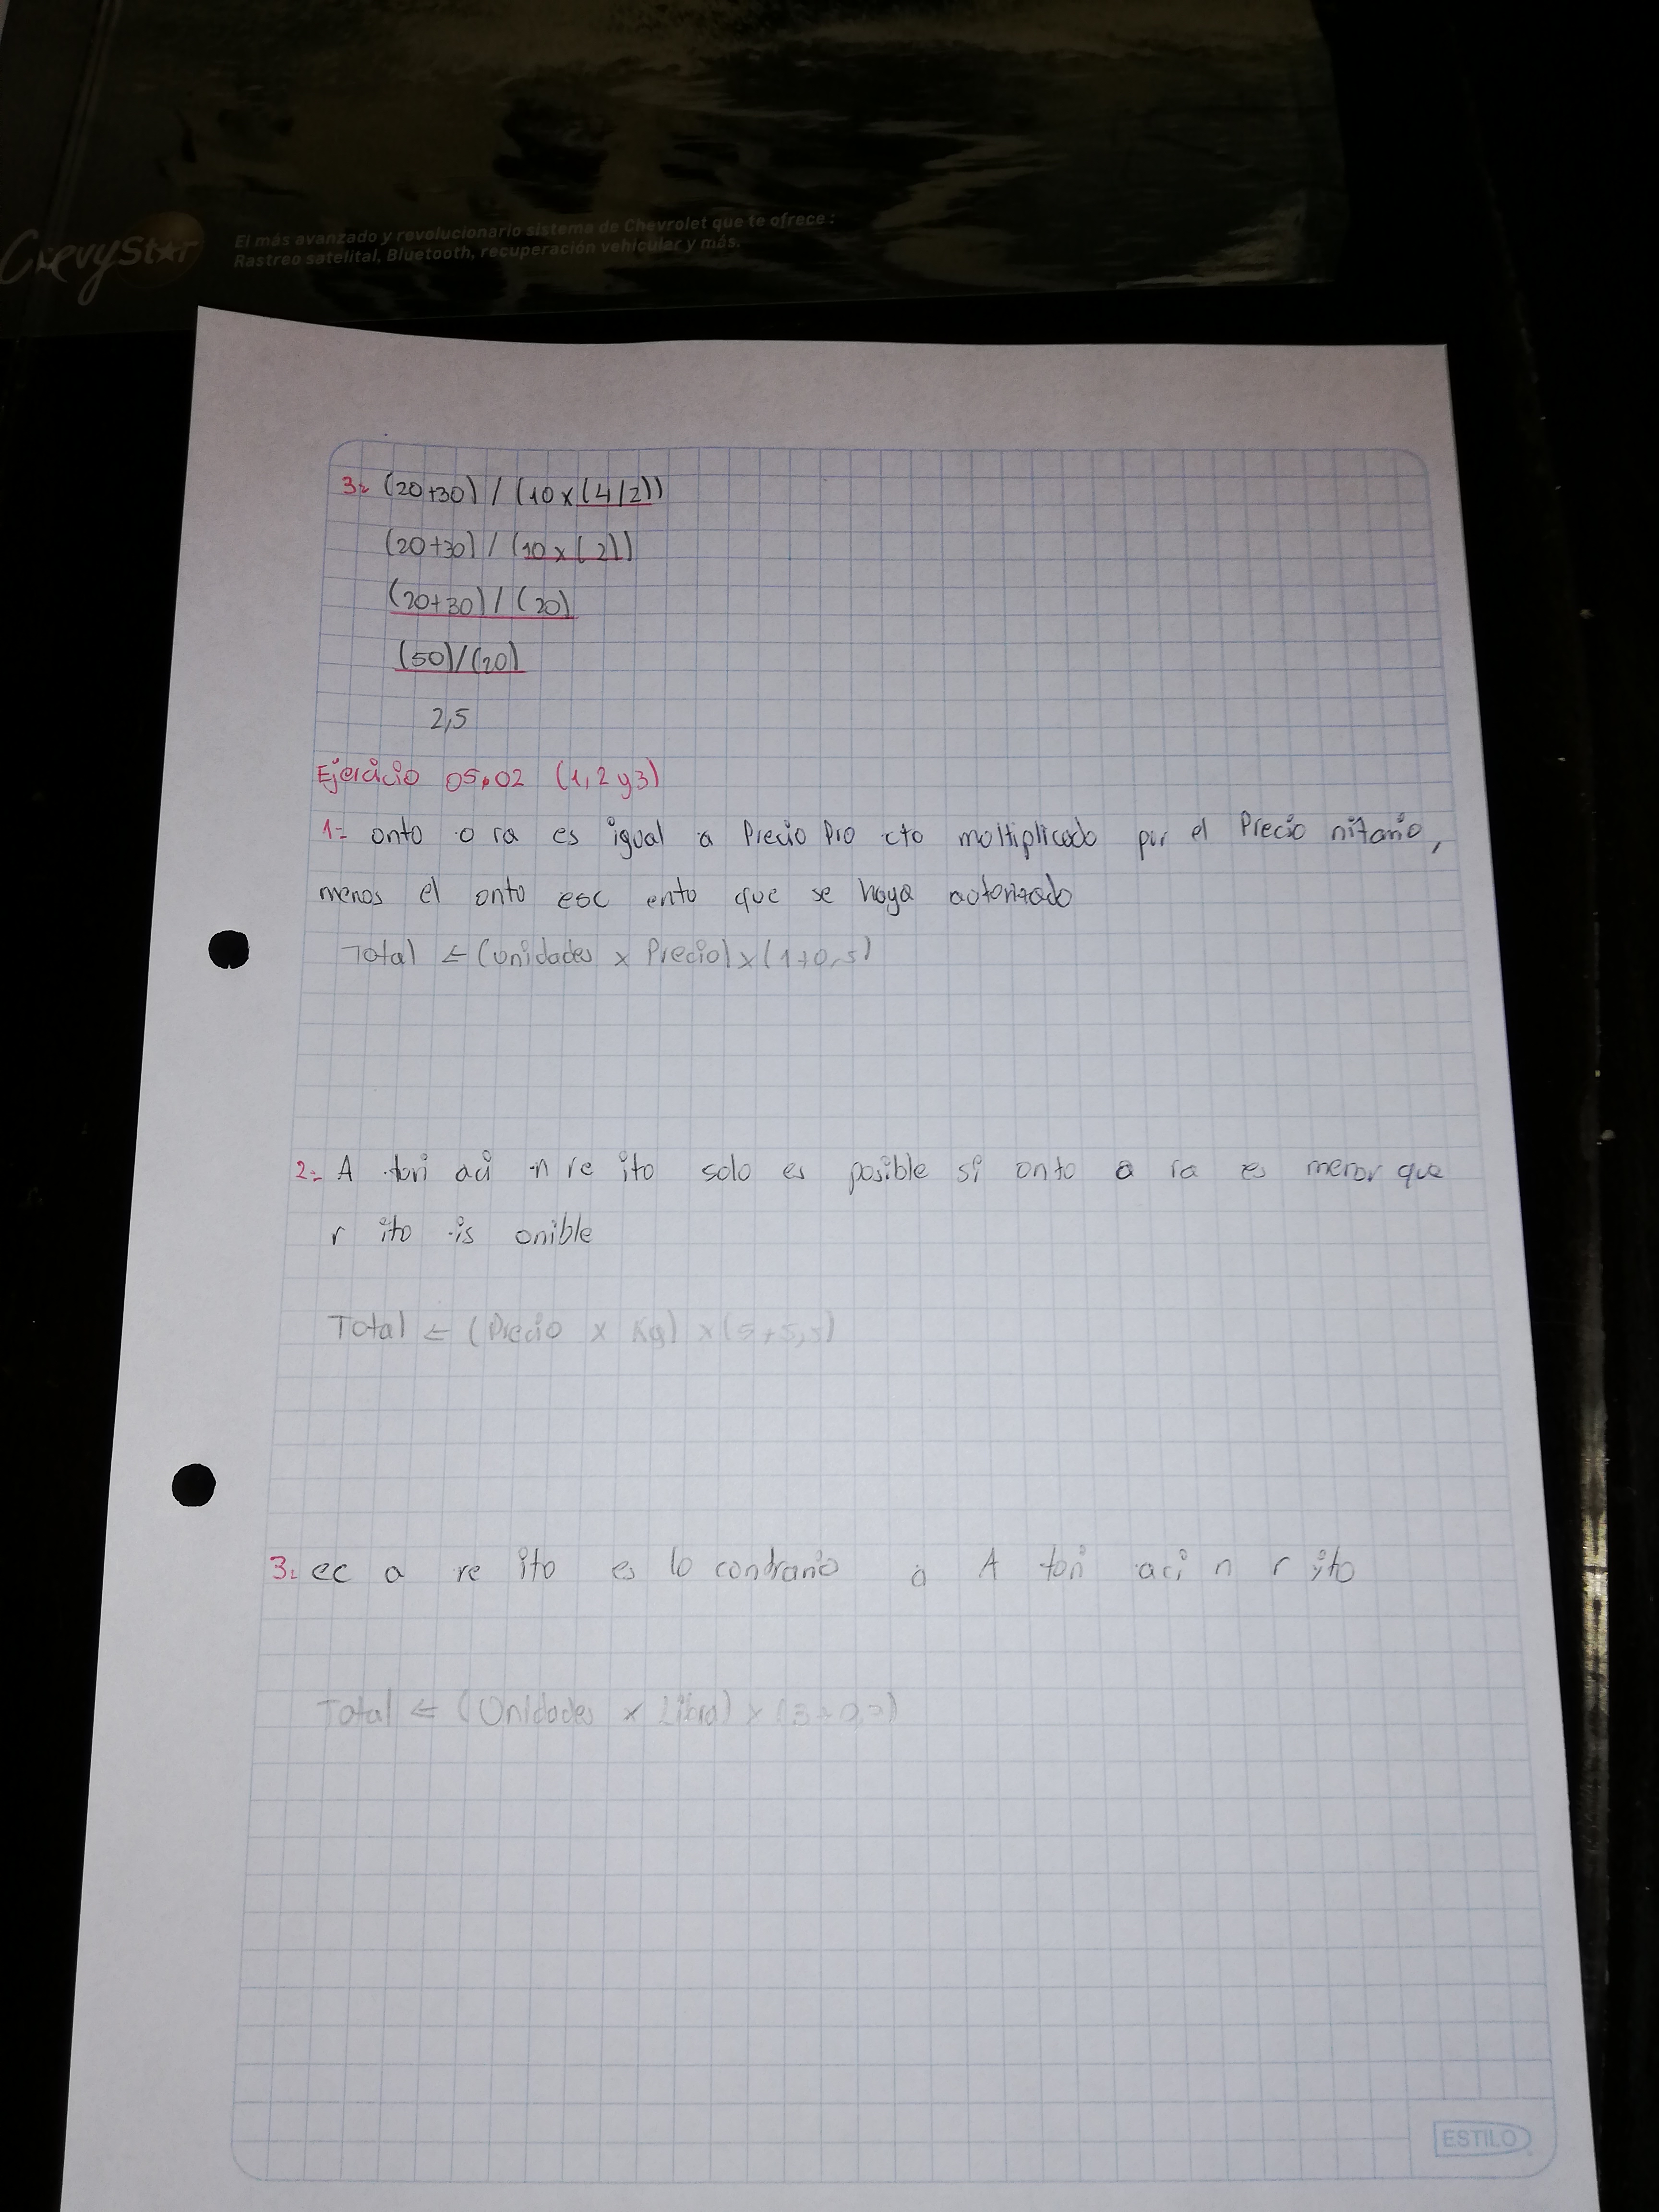 ChevyStar
El más avanzado y revolucionario sistema de Chevrolet que te ofrece:
Rastreo satelital, Bluetooth, recuperación vehicular y más.
3= (20+30) / (10x(4/2))
(20+30) / (10x(2))
(20+30) / (20)
(50)/(20)
2,5
Ejercicio 05.02 (1,2 y 3)
1= onto o ra es igual a Precio Pro cto moltiplicado por el Precio nitario,
menos el onto esc ento que se haya autorizado
Total ← (Unidades x Precio) x (1+0,5)
2= A tori aci n re ito solo es posible si onto o ra es menor que
r ito is onible
Total ← (Precio x Kg) x (5+5,5)
3= ec a re ito es lo contrario a A tori aci n r ito
Total ← (Unidades x Libra) x
ESTILO